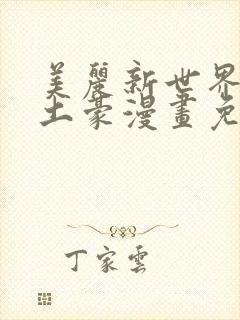 美麗新世界
土豪漫畫免
丁家雲